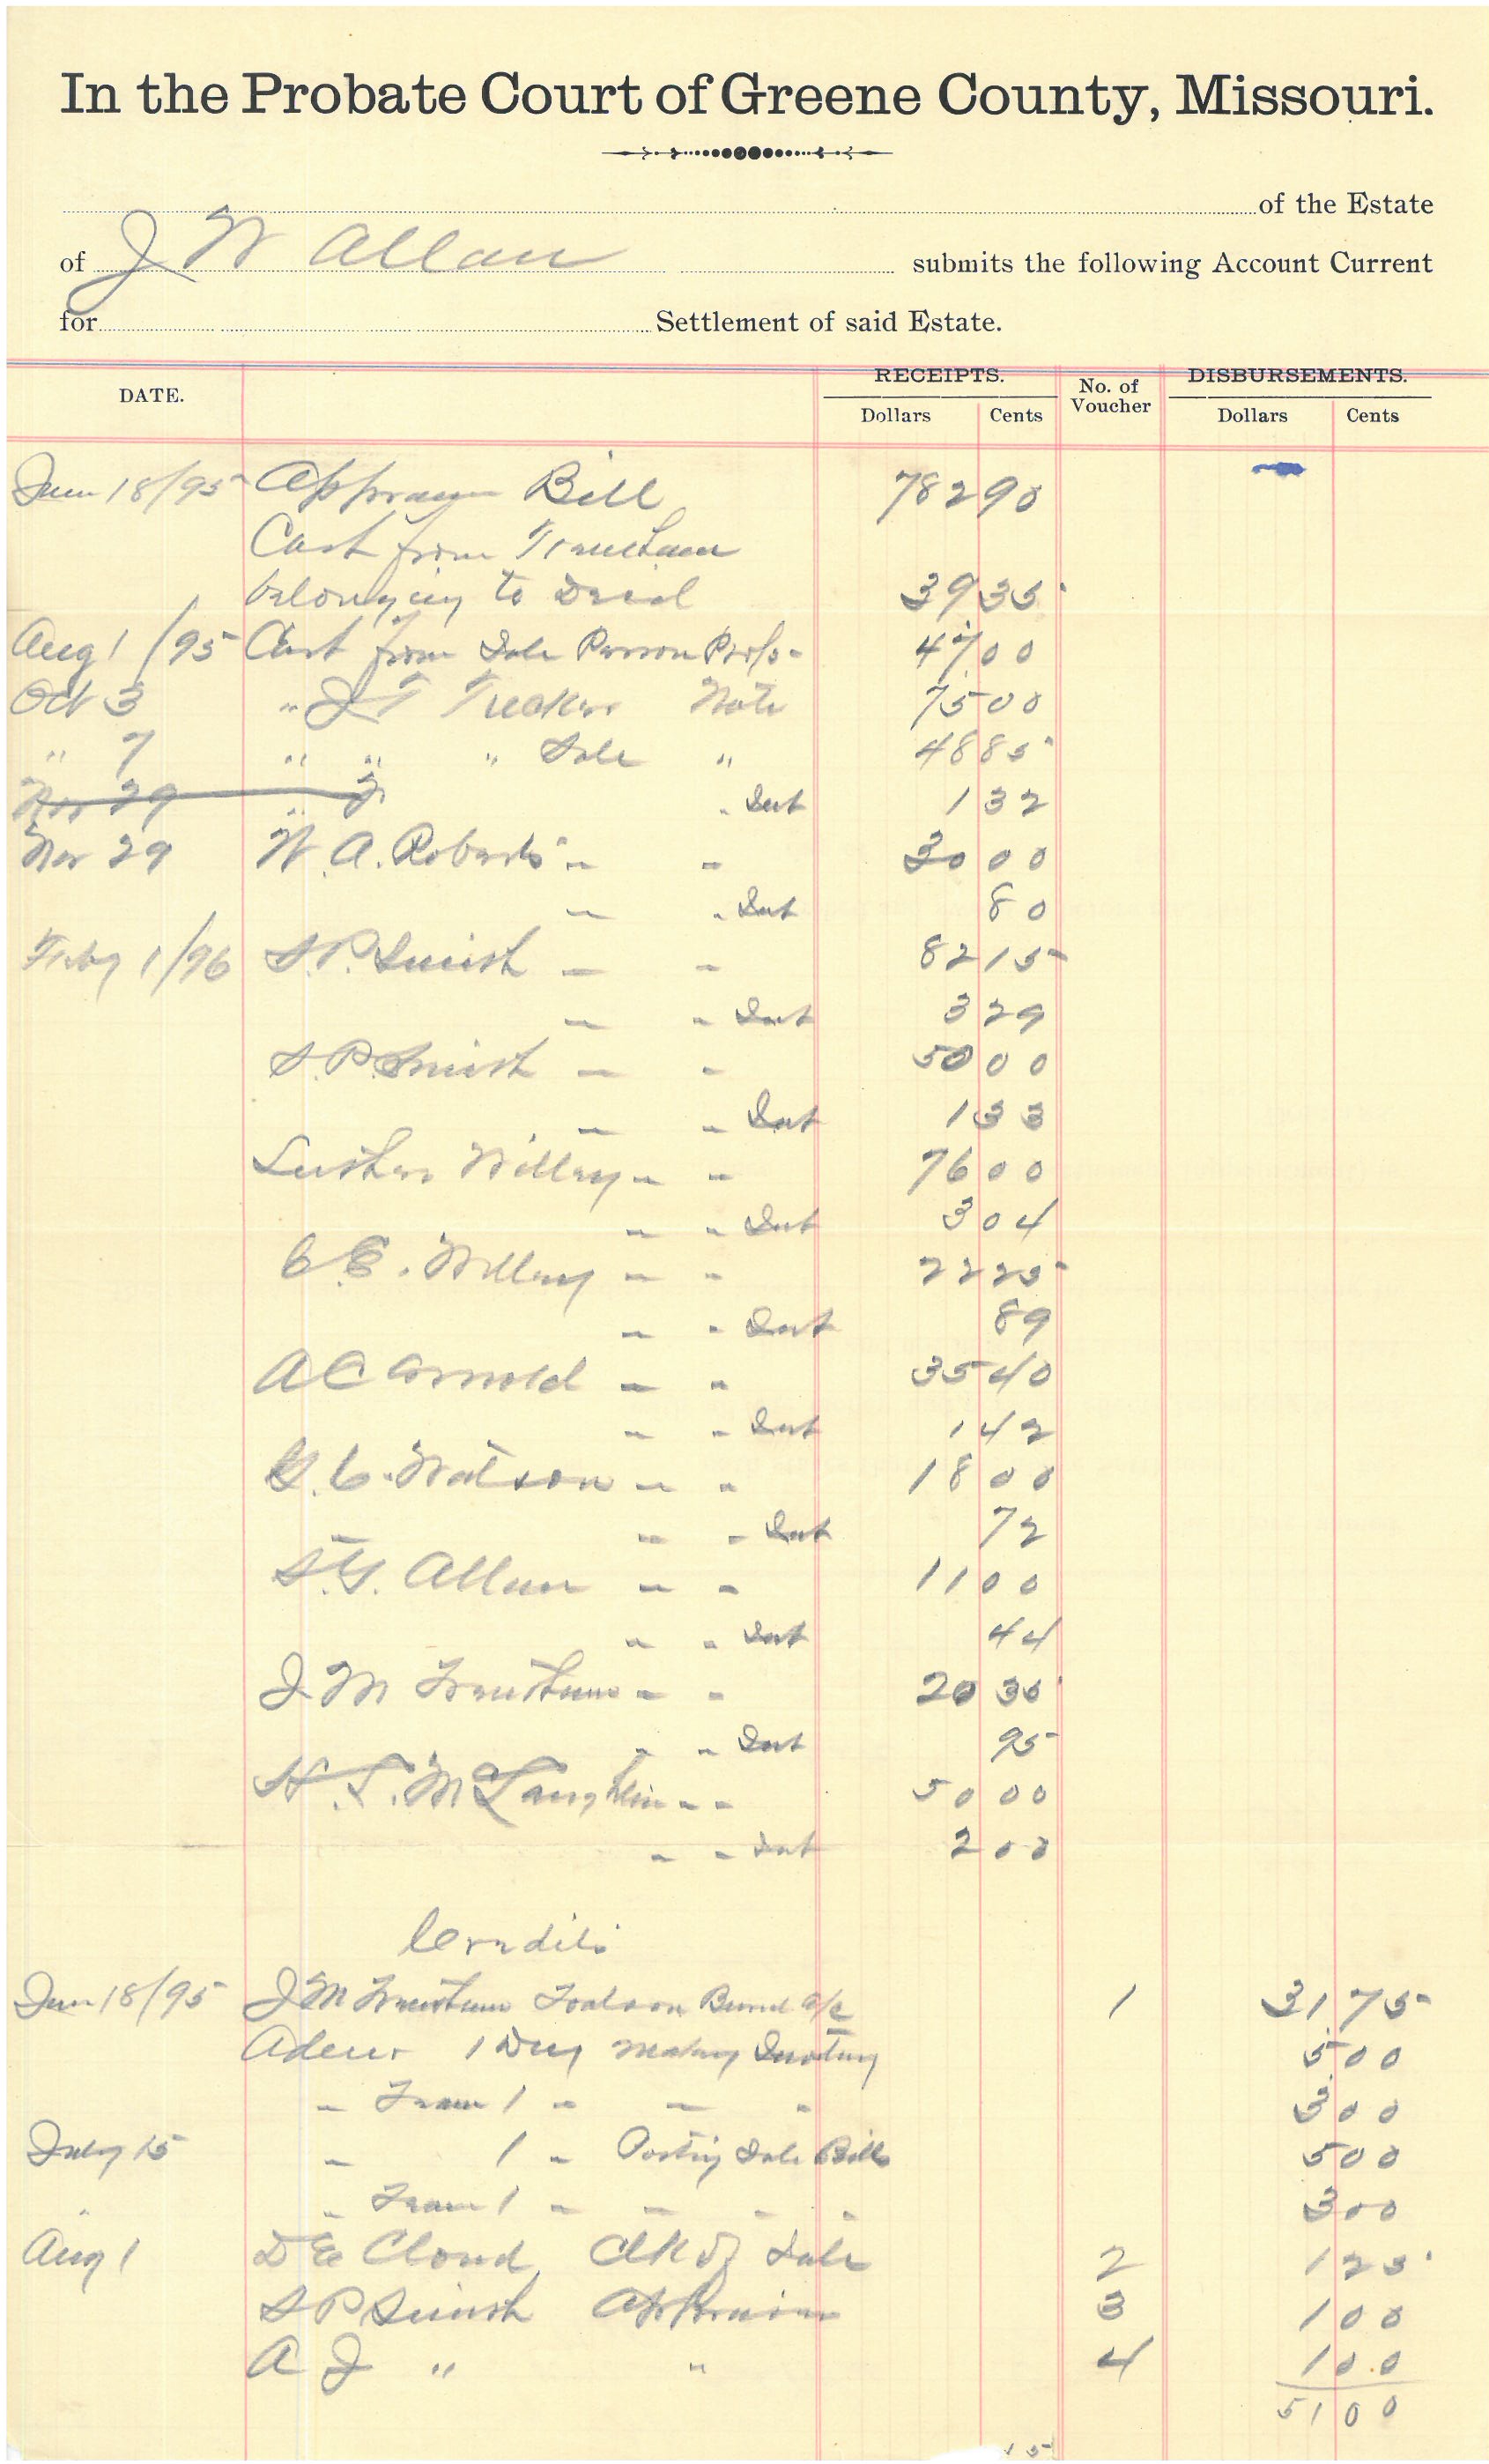 In the Probate Court of Greene County, Missouri.
of the Estate
of J W Allan submits the following Account Current
for Settlement of said Estate.
DATE. RECEIPTS. No. of Voucher DISBURSEMENTS.
Dollars Cents Dollars Cents
Jun 18/95 Bill 782 90
Cash from Trantham
belonging to Decd 39 35
Aug 1/95 Cash from Sale Person Prop- 47 00
Oct 3 " J T Tuckers Note 75 00
" 7 " " " Sale " 48 85
Nov 29 " J " Int 1 32
Nov 29 W. A. Roberts " " 30 00
" " Int 80
Feby 1/96 S. P. Smith " " 82 15
" " Int 3 29
S. P. Smith " " 50 00
" " Int 1 33
Luther Willey " " 76 00
" " Int 3 04
C E. Willey " " 22 25
" " Int 89
A C Arnold " " 35 40
" " Int 1 42
G. C. Watson " " 18 00
" " Int 72
S. G. Allan " " 11 00
" " Int 44
J. M Trantham " " 20 30
" " Int 95
H. T. McLaughlin " " 50 00
" " Int 2 00
Credits
Jun 18/95 J M Trantham Burial a/c 1 31.75
1 Day making 5 00
" Team 1 " " " 3 00
July 15 " 1 " Posting Sale Bills 5 00
" Team 1 " " " " 3 00
Aug 1 D E Cloud, Clk of Sale 2 1 25
S P Smith 3 1 00
A J " " 4 1 0.0
51 00